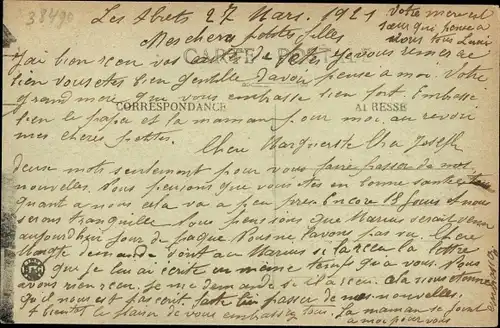 38490
Les Abrets 27 Mars 1921
votre mere et
sœur qui pense a
vous tous Louis
Mes chere petites filles
CARTE POSTALE
J'ai bien recu vos cartes de fetes je vous remercie
bien vous etes bien gentille d'avoir pense a moi. Votre
grand mere qui vous embrasse bien fort. Embrasse
CORRESPONDANCE
ADRESSE
bien le papa et la maman pour moi au revoir
mes chere petites.
Chere Marguerite Cher Joseph
Deux mots seulement pour vous faire passer de nos
nouvelles. Nous pensons que vous etes en bonne sante
quant a nous cela va a peu pres Encore 18 jours et nous
serons tranquille Nous pensions que Marius serait venu
aujourdhui jour de paque Nous ne l'avons pas vu Chere
demande dont au Marius si la recu la lettre
que je lui ai ecrite en meme temps qu'a vous Nous
avons rien recu. je me demande si il a recu. Cela nous etonne
qu'il nous est pas ecrit faite lui passer de nos nouvelles.
A bientot le plaisir de vous embrasser tous. La maman se joint
a moi pour vous